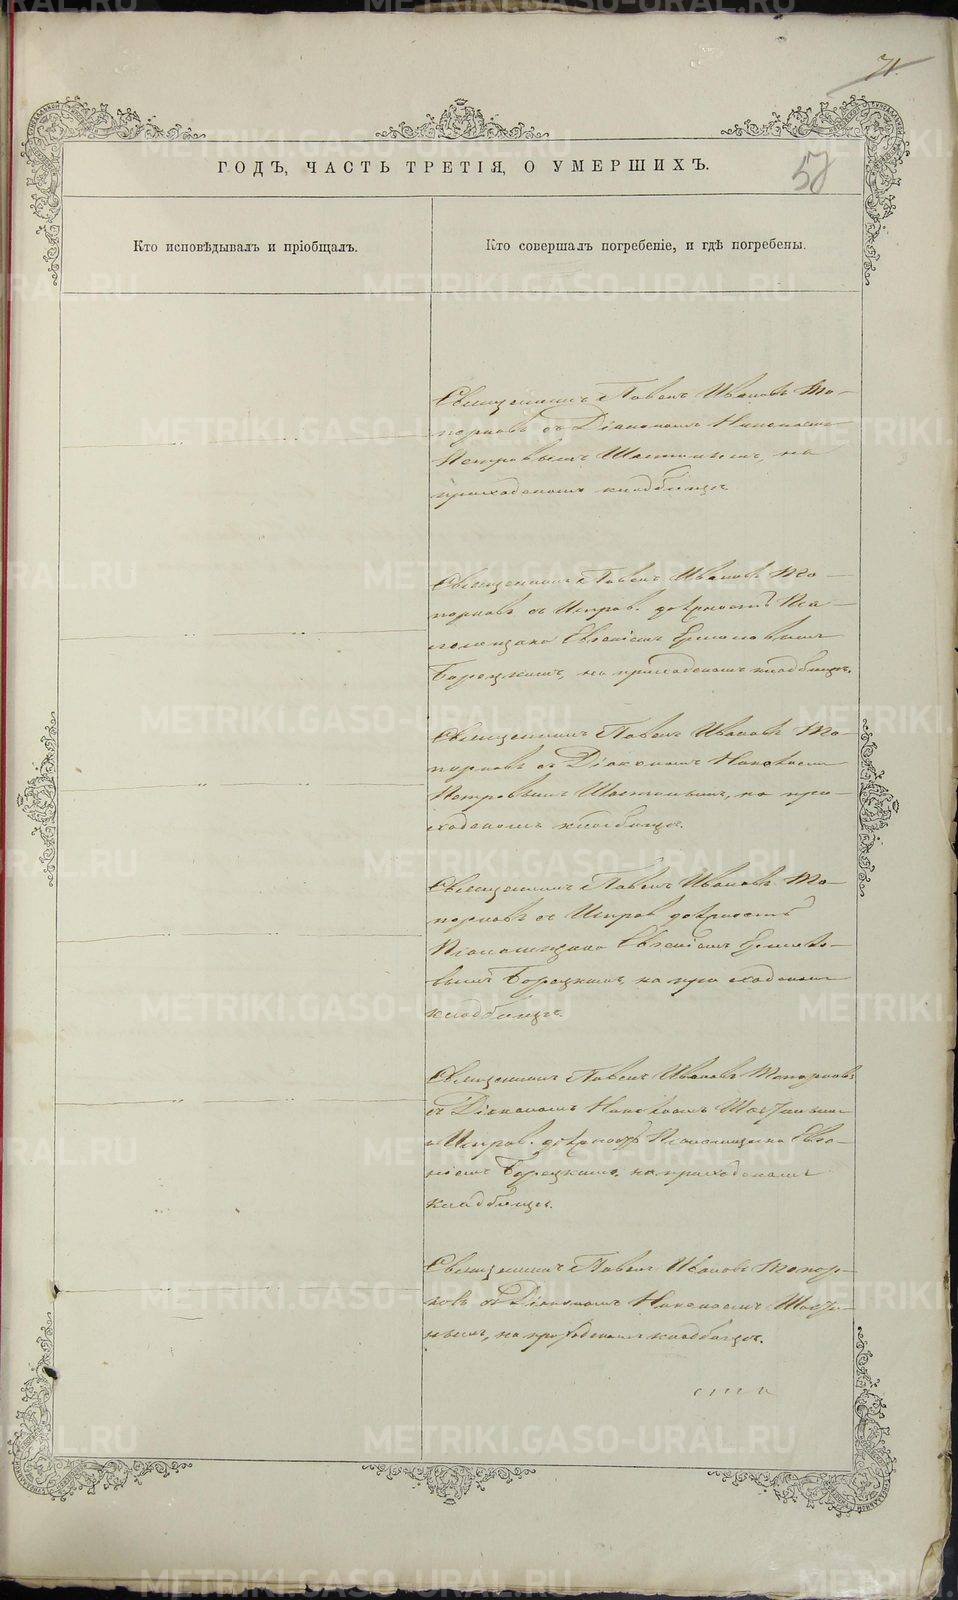 71.
57
ГОДЪ, ЧАСТЬ ТРЕТІЯ, О УМЕРШИХЪ.
Кто исповѣдывалъ и пріобщалъ.
Кто совершалъ погребеніе, и гдѣ погребены.
Священникъ Павелъ Ивановъ То-
порковъ съ Діакономъ Николаемъ
Петровымъ, на
приходскомъ кладбищѣ.
Священникъ Павелъ Ивановъ То-
порковъ съ Исправ. должность Пса-
ломщика Евгеніемъ
Борецкимъ, на приходскомъ кладбищѣ.
Священникъ Павелъ Ивановъ То-
порковъ съ Діакономъ Николаемъ
Петровымъ, на при-
ходскомъ кладбищѣ.
Священникъ Павелъ Ивановъ То-
порковъ съ Исправ должность
Псаломщика Евгеніемъ
Борецкимъ, на приходскомъ
кладбищѣ.
Священникъ Павелъ Ивановъ Топорковъ
съ Діакономъ Николаемъ
и Исправ. должность Псаломщика Евге-
ніемъ Борецкимъ, на приходскомъ
кладбищѣ.
Священникъ Павелъ Ивановъ Топор-
ковъ съ Діакономъ Николаемъ
на приходскомъ кладбищѣ.
METRIKI.GASO-URAL.RU